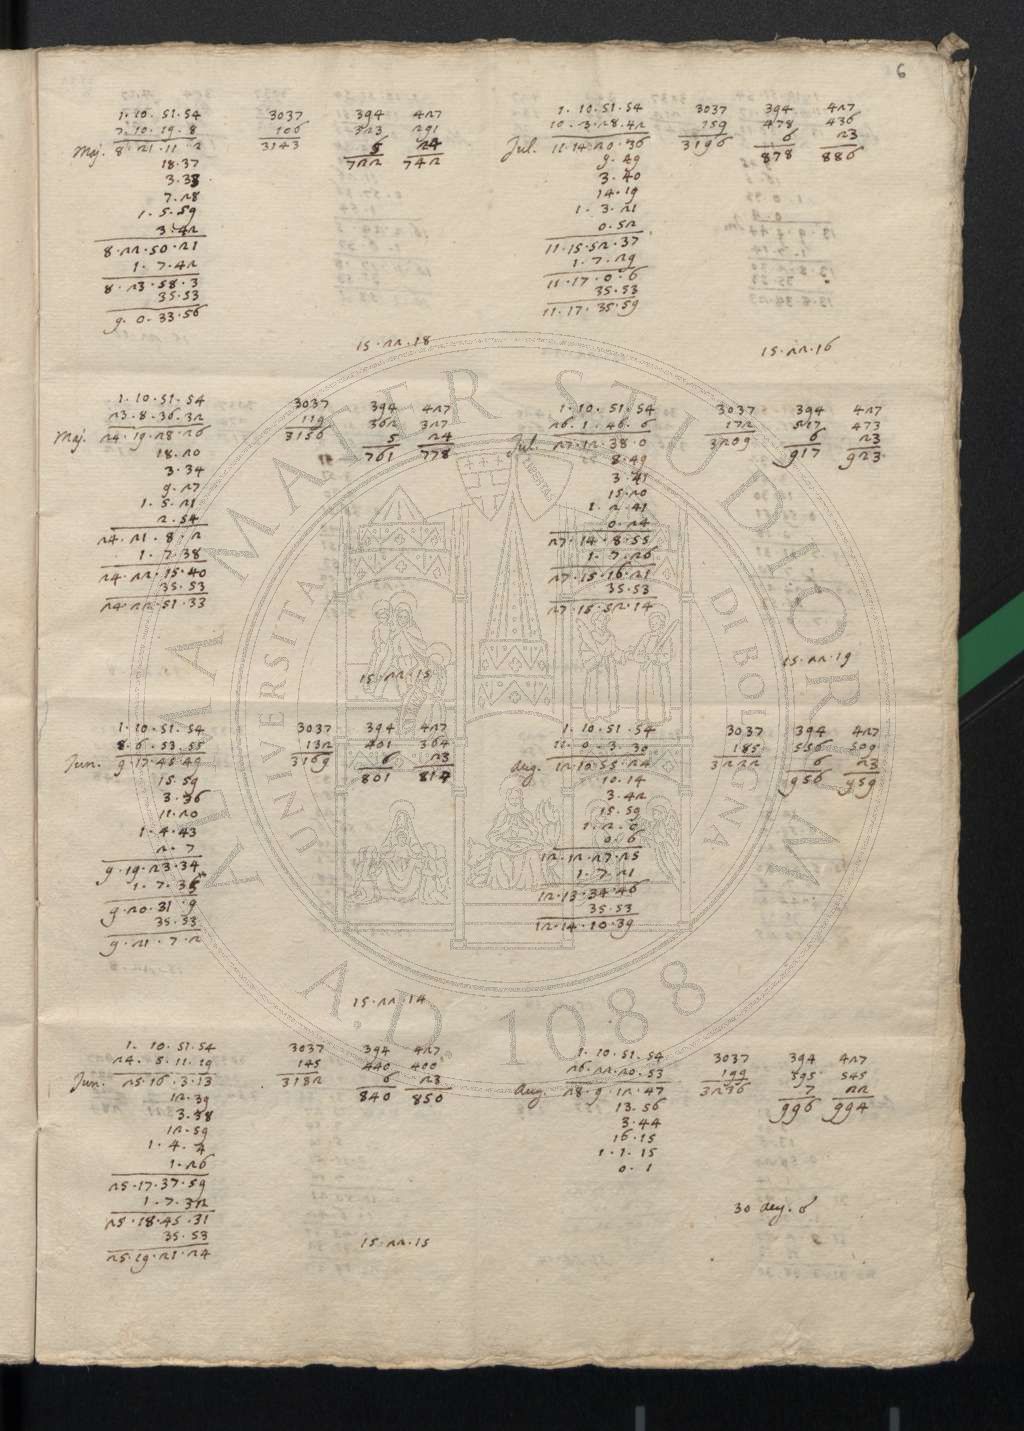 6
1. 10. 51. 54 3037 394 427
7. 10. 19. 8 106 323 291
Maj. 8. 21. 11. 2 3143 5 24
18. 37 722 742
3. 33
7. 28
1. 5. 59
3. 42
8. 22. 50. 21
1. 7. 42
8. 23. 58. 3
35. 53
9. 0. 33. 56
15. 22. 18
1. 10. 51. 54 3037 394 427
23. 8. 36. 32 119 362 327
Maj. 24. 19. 28. 26 3156 5 24
18. 20 761 778
3. 34
9. 27
1. 5. 21
2. 54
24. 21. 8. 2
1. 7. 38
24. 22. 15. 40
35. 53
24. 22. 51. 33
15. 22. 15
1. 10. 51. 54 3037 394 427
8. 6. 53. 55 132 401 364
Jun. 9. 17. 45. 49 3169 6 23
15. 59 801 814
3. 36
11. 20
1. 4. 43
2. 7
9. 19. 23. 34
1. 7. 35
9. 20. 31. 9
35. 53
9. 21. 7. 2
15. 22. 14
1. 10. 51. 54 3037 394 427
24. 5. 11. 19 145 440 400
Jun. 25. 16. 3. 13 3182 6 23
12. 39 840 850
3. 38
12. 59
1. 4. 4
1. 26
25. 17. 37. 59
1. 7. 32
25. 18. 45. 31
35. 53
25. 19. 21. 24
15. 22. 15
1. 10. 51. 54 3037 394 427
10. 3. 28. 42 159 478 436
Jul. 11. 14. 20. 36 3196 6 23
9. 49 878 886
3. 40
14. 19
1. 3. 21
0. 52
11. 15. 52. 37
1. 7. 29
11. 17. 0. 6
35. 53
11. 17. 35. 59
15. 22. 16
1. 10. 51. 54 3037 394 427
26. 1. 46. 6 172 517 473
Jul. 27. 12. 38. 0 3209 6 23
8. 49 917 923
3. 41
15. 20
1. 2. 41
0. 24
27. 14. 8. 55
1. 7. 26
27. 15. 16. 21
35. 53
27. 15. 52. 14
15. 22. 19
1. 10. 51. 54 3037 394 427
11. 0. 3. 30 185 556 509
Aug. 12. 10. 55. 24 3222 6 23
10. 14 956 959
3. 42
15. 59
1. 2. 0
0. 6
12. 12. 27. 25
1. 7. 21
12. 13. 34. 46
35. 53
12. 14. 10. 39
1. 10. 51. 54 3037 394 427
26. 22. 20. 53 199 595 545
Aug. 28. 9. 12. 47 3236 7 22
13. 56 996 994
3. 44
16. 15
1. 1. 15
0. 1
ALMA MATER STUDIORUM
A.D. 1088
UNIVERSITA DI BOLOGNA